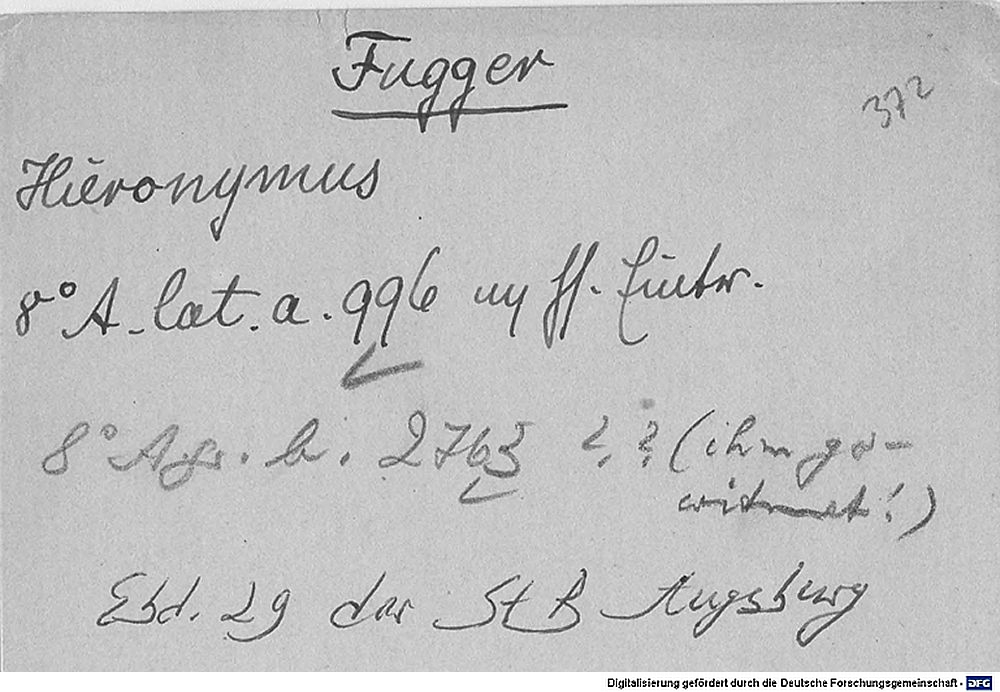 Fugger
372
Hieronymus
8° A. lat. a. 996 m hs. Eintr.
8° A gr. b. 2763 ? ? (ihm ge-
widmet!)
Ebd. 29 der St B Augsburg
Digitalisierung gefördert durch die Deutsche Forschungsgemeinschaft - DFG